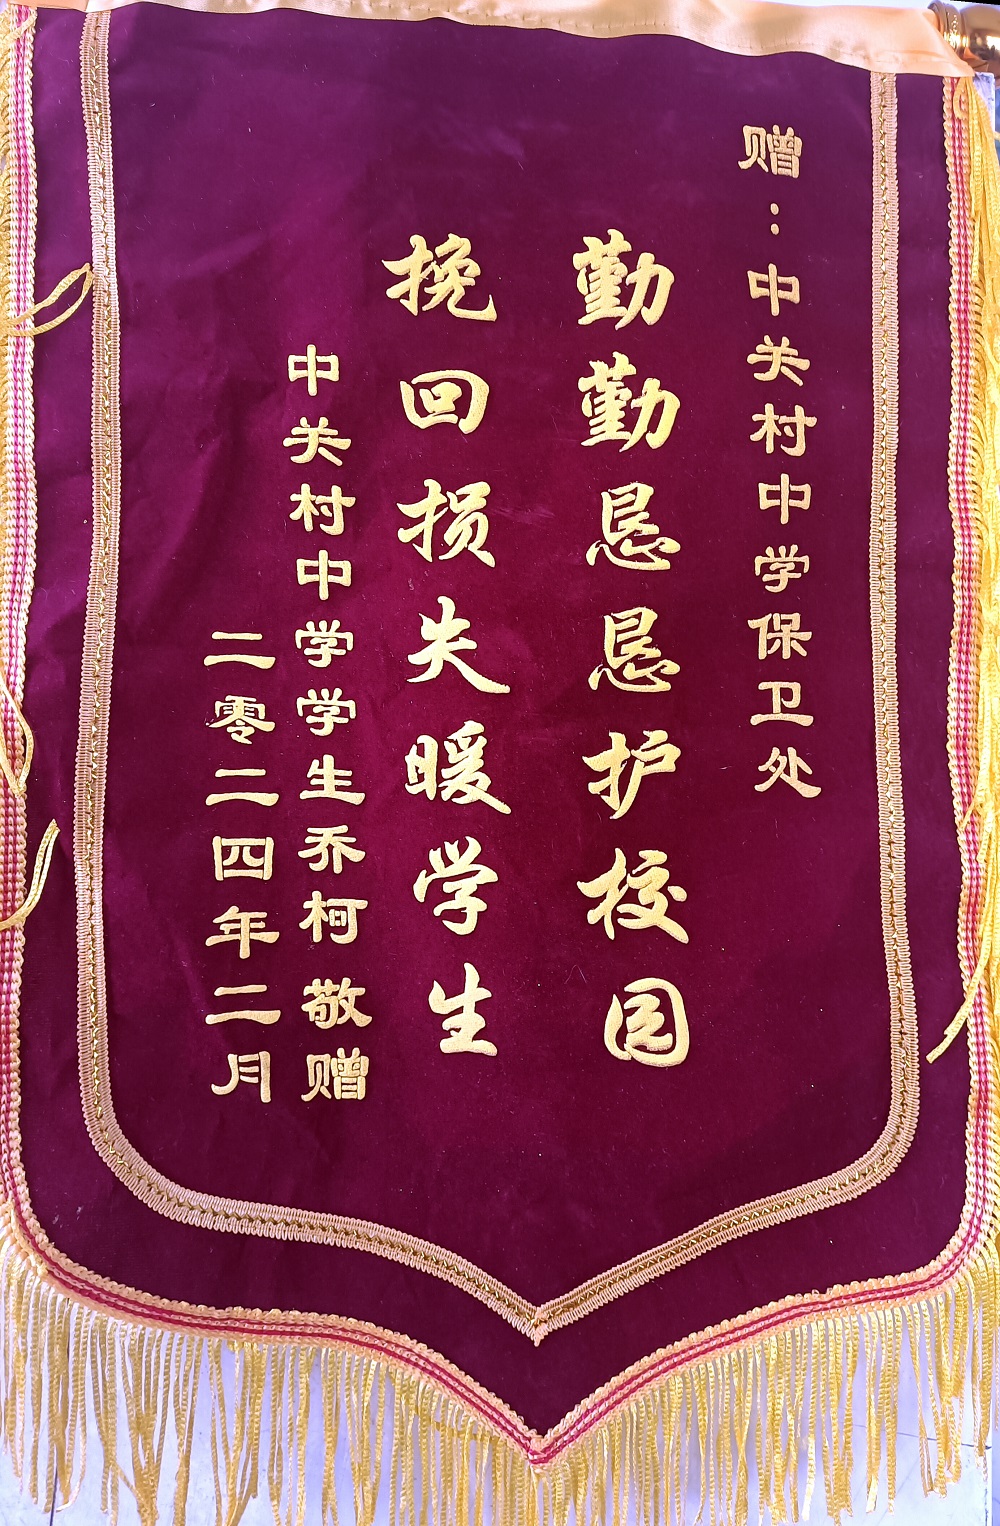 赠：中关村中学保卫处
勤勤恳恳护校园
挽回损失暖学生
中关村中学学生乔柯 敬赠
二零二四年二月